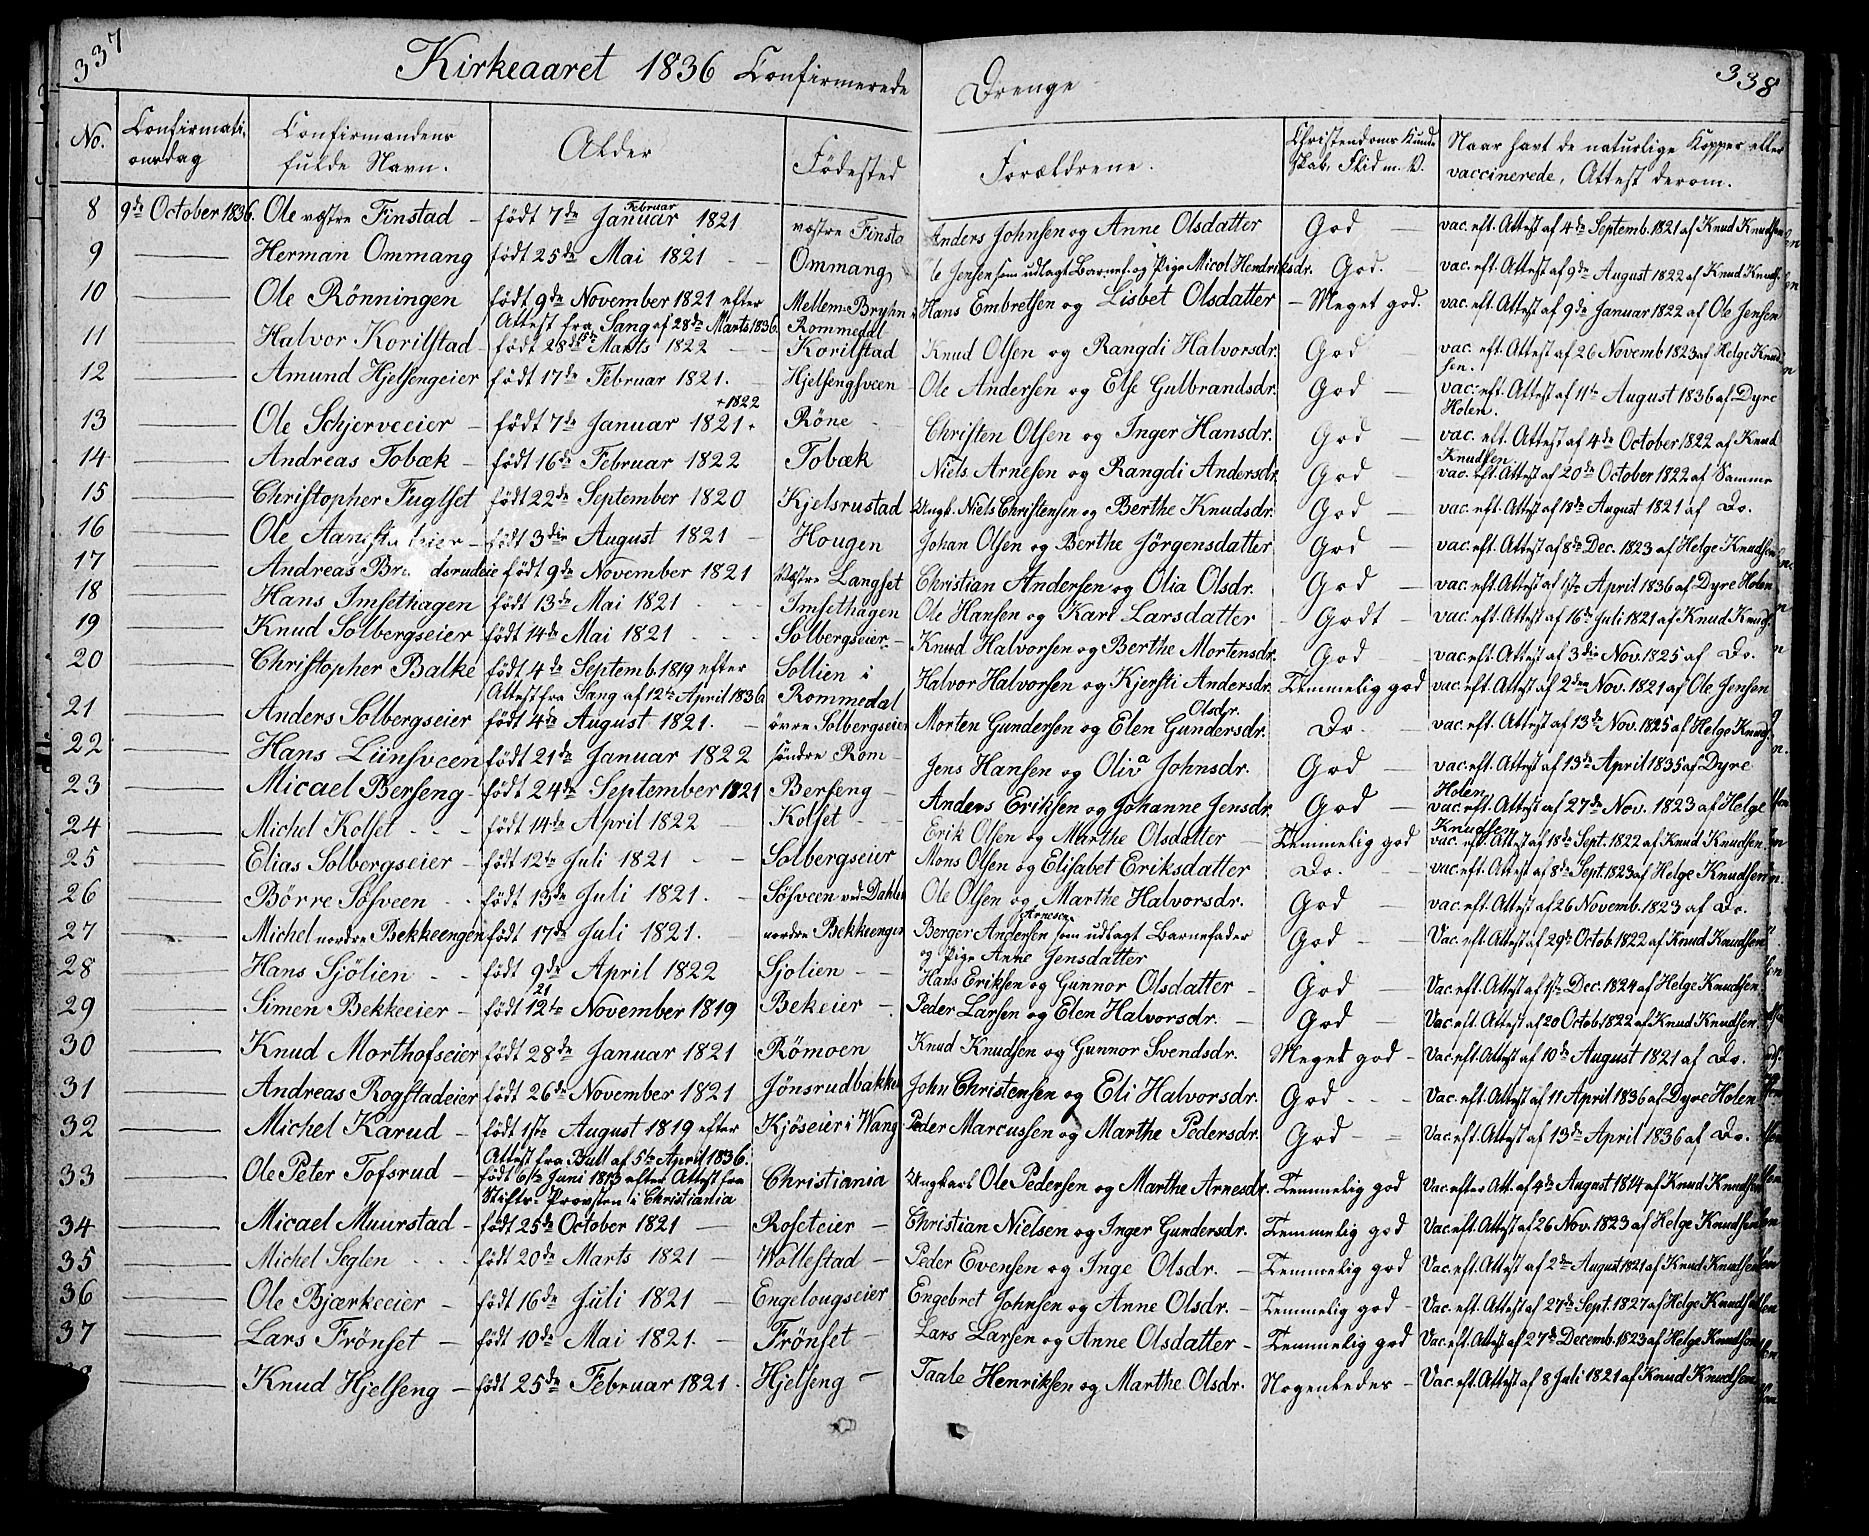 337
Kirkeaaret 1836 Confirmerede Drenge
338
No. Confirmati- onsdag Confirmandens fulde Navn. Alder Födested Forældrene. Christendoms Kund- skab, Flid m. V. Naar havt de naturlige Kopper eller vaccinerede, Attest derom.
8 9de October 1836. Ole væstre Finstad - födt 7de Januar Februar 1821 væstre Finsta Anders Johnsen og Anne Olsdatter God - vac. eft. Attest af 4de Septemb. 1821 af Knud Knudsen
9 Herman Ommang födt 25de Mai 1821 - Ommang Ole Jensen som udlagt Barnef. og Pige Micol Hendriksdr. God. vac. eft. Attest af 9de August 1822 af Knud Knuds.
10 Ole Rönningen födt 9de November 1821 efter Attest fra Vang af 28de Marts 1836. Mellem-Bryhn i Rommedal Hans Embretsen og Lisbet Olsdatter - Meget god. vac. eft. Attest af 9de Januar 1822 af Ole Jensen
11 Halvor Korilstad - födt 28de Marts 1822 - Korilstad Knud Olsen og Rangdi Halvorsdr. God - vac. eft. Attest af 26 Novemb 1823 af Helge Knud- sen.
12 Amund Hjelsengeier födt 17de Februar 1821. - Hjelsengsveen Ole Andersen og Else Gulbrandsdr. God - vac. eft. Attest af 11te August 1836 af Dyre Holen.
13 Ole Schjerveeier - födt 7de Januar 1821 + + 1822 Röne - Christen Olsen og Inger Hansdr. God - vac. eft. Attest af 4de October 1822 af Knud Knudsen
14 Andreas Tobæk - födt 16de Februar 1822 Tobæk Niels Arnesen og Rangdi Andersdr. God - vac. eft. Attest af 20de October 1822 af Samme
15 Christopher Fuglset födt 22de September 1820 Kjelsrustad Ungk. Niels Christensen og Berthe Knudsdr. God - vac. eft. Attest af 18de August 1821 af Do.
16 Ole födt 3die August 1821 - Hougen Johan Olsen og Berthe Jörgensdatter God - vac. eft. Attest af 8de Dec. 1823 af Helge Knudsen
17 Andreas födt 9de November 1821 Væstre Langset Christian Andersen og Olia Olsdr. God - vac. eft. Attest af 1ste April 1836 af Dyre Holen
18 Hans Imsethagen födt 13de Mai 1821 - Imsethagen Ole Hansen og Kari Larsdatter - Godt - vac. eft. Attest af 16de Juli 1821 af Knud Knuds.
19 Knud Solbergseier födt 14de Mai 1821 - Solbergseier - Knud Halvorsen og Berthe Mortensdr. God - vac. eft. Attest af 3die Nov. 1825 af Do.
20 Christopher Balke födt 4de Septemb. 1819 efter Attest fra Vang af 12te April 1836. Sollien i Rommedal Halvor Halvorsen og Kjersti Andersdr. Temmelig god vac. eft. Attest af 2den Nov. 1821 af Ole Jensen
21 Anders Solbergseier födt 4de August 1821. - övre Solbergseier Morten Gundersen og Elen Gundersdr. Olsdr. Do. - vac. eft. Attest af 13de Nov. 1825 af Helge Knuds.
22 Hans Lünsveen födt 21de Januar 1822 söndre Rom - Jens Hansen og Oliva Johnsdr. God - vac. eft. Attest af 13de April 1835 af Dyre Holen
23 Micael Berseng - födt 24de September 1821 Berseng - Anders Eriksen og Johanne Jensdr. God - vac. eft. Attest af 27de Nov. 1823 af Helge Knudsen
24 Michel Kolset - födt 14de April 1822 - Kolset - Erik Olsen og Marthe Olsdatter - Temmelig god vac. eft. Attest af 18de Sept. 1822 af Knud Knudsen.
25 Elias Solbergseier - födt 12te Juli 1821 - Solbergseier Mons Olsen og Elisabet Eriksdatter Do. - vac. eft. Attest af 8de Sept. 1823 af Helge Knudsen
26 Börre Sösveen - födt 13de Juli 1821. - Sösveen ved Dahlen Ole Olsen og Marthe Halvorsdr. God - vac. eft. Attest af 26 Novemb. 1823 af Do.
27 Michel nordre Bekkeengen födt 17de Juli 1821. - nordre Bekkeengen Berger Andersen Arnesen som udlagt Barnefader og Pige Anne Jensdatter God - Vac. eft. Attest af 29de Octob. 1822 af Knud Knudsen
28 Hans Sjölien - födt 9de April 1822 Sjolien - Hans Eriksen og Gunnor Olsdatter - God - Vac. eft. Attest af 1ste Dec. 1824 af Helge Knudsen.
29 Simen Bekkeeier - födt 12te 21 November 1819 Bekeier - Peder Larsen og Elen Halvorsdr. - God - Vac. eft. Attest af 20 Octob. 1822 af Knud Knudsen
30 Knud Morthofseier födt 28de Januar 1821 Römoen Knud Knudsen og Gunnor Svendsdr. Meget god - Vac. eft. Attest af 10de August 1821 af Do.
31 Andreas Rogstadeier födt 26de November 1821 Jönsrudbakken John Christensen og Eli Halvorsdr. God - Vac. eft. Attest af 11 April 1836 af Dyre Holen
32 Michel Karud - födt 1ste August 1819 efter Attest fra Butt af 5te April 1836. Kjöseier i Wang Peder Marcussen og Marthe Pedersdr. God - Vac. eft. Attest af 13de April 1836 af Do.
33 Ole Peter Tofsrud - födt 6te Juni 1813 efter Attest fra Stifts-Provsten i Christiania Christiania Ungkarl Ole Pedersen og Marthe Arnesdr. Temmelig god Vac. efter Att. af 4de August 1814 af Knud Knudsen
34 Micael Muurstad - födt 25de October 1821 - Roseteier - Christian Nielsen og Inger Gundersdr. Temmelig god Vac. eft. Attest af 26 Nov. 1823 af Helge Knudsen
35 Michel Seglen - födt 20de Marts 1821 - Wollestad - Peder Evensen og Inge Olsdr. - Temmelig god Vac. eft. Attest af 2de August 1821 af Knud Knudsen
36 Ole Bjærkeeier - födt 16de Juli 1821 - Engelougseier Engebret Johnsen og Anne Olsdr. - Temmelig god - Vac. eft. Attest af 27de Sept. 1827 af Helge Knudsen
37 Lars Frönset - födt 10de Mai 1821. - Frönset - Lars Larsen og Anne Olsdatter - Temmelig god Vac. eft. Attest af 27de Decemb. 1823 af Helge Knudsen
Knud Hjelseng - födt 25de Februar 1821. Hjelseng - Taale Henriksen og Marthe Olsdr. Nogenledes - Vac. eft. Attest af 8 Juli 1821 af Knud Knudsen